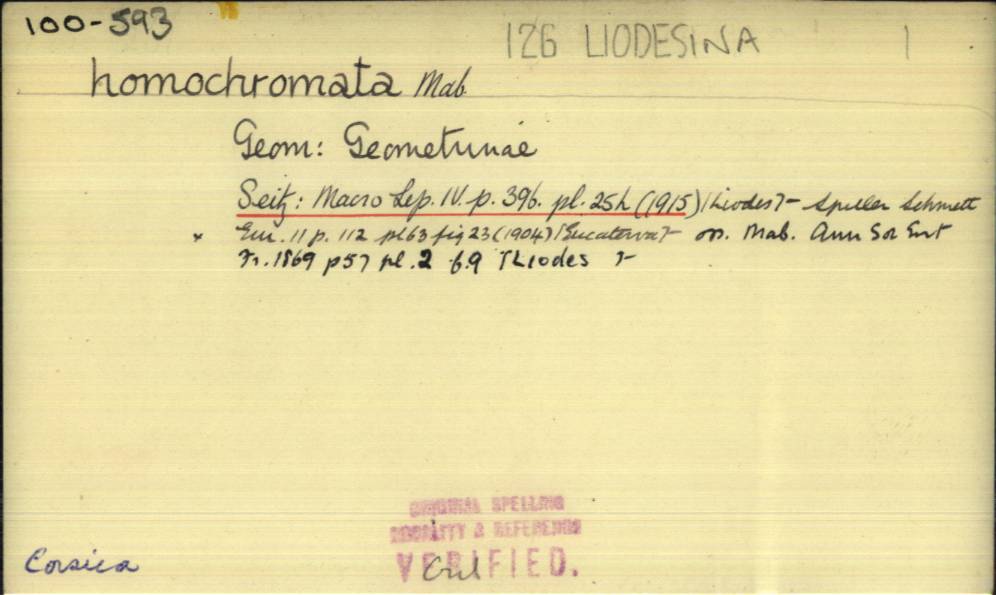 100-593
126 LIODESINA 1
homochromata Mab.
Geom: Geometrinae
Seitz: Macro Lep. IV. p. 396. pl. 25h (1915) [Liodes]- Spuler Schmett
× Eur. 11 p. 112 pl 63 fig 23 (1904) [Eucaterva]- or. Mab. Ann Soc Ent
Fr. 1869 p 57 pl. 2 f. 9 [Liodes]-
ORIGINAL SPELLING
LOCALITY & REFERENCE
VERIFIED.
Corsica